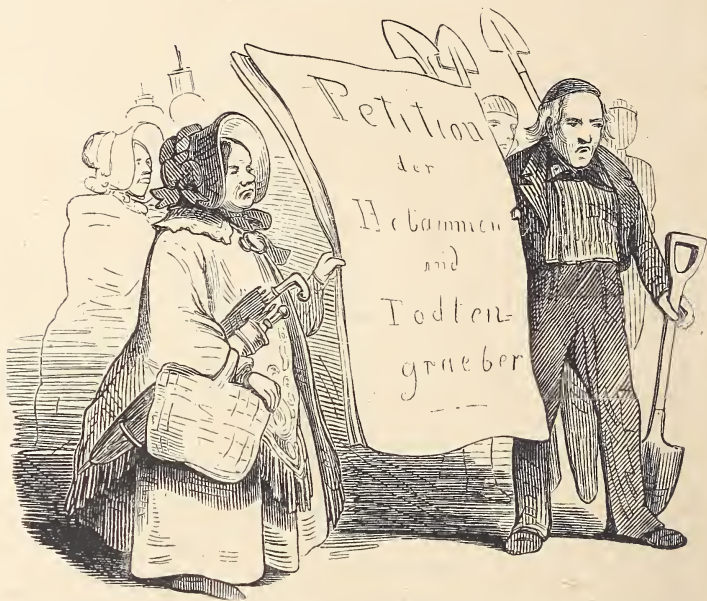 Petition
der
Hebammen
und
Todten-
graeber